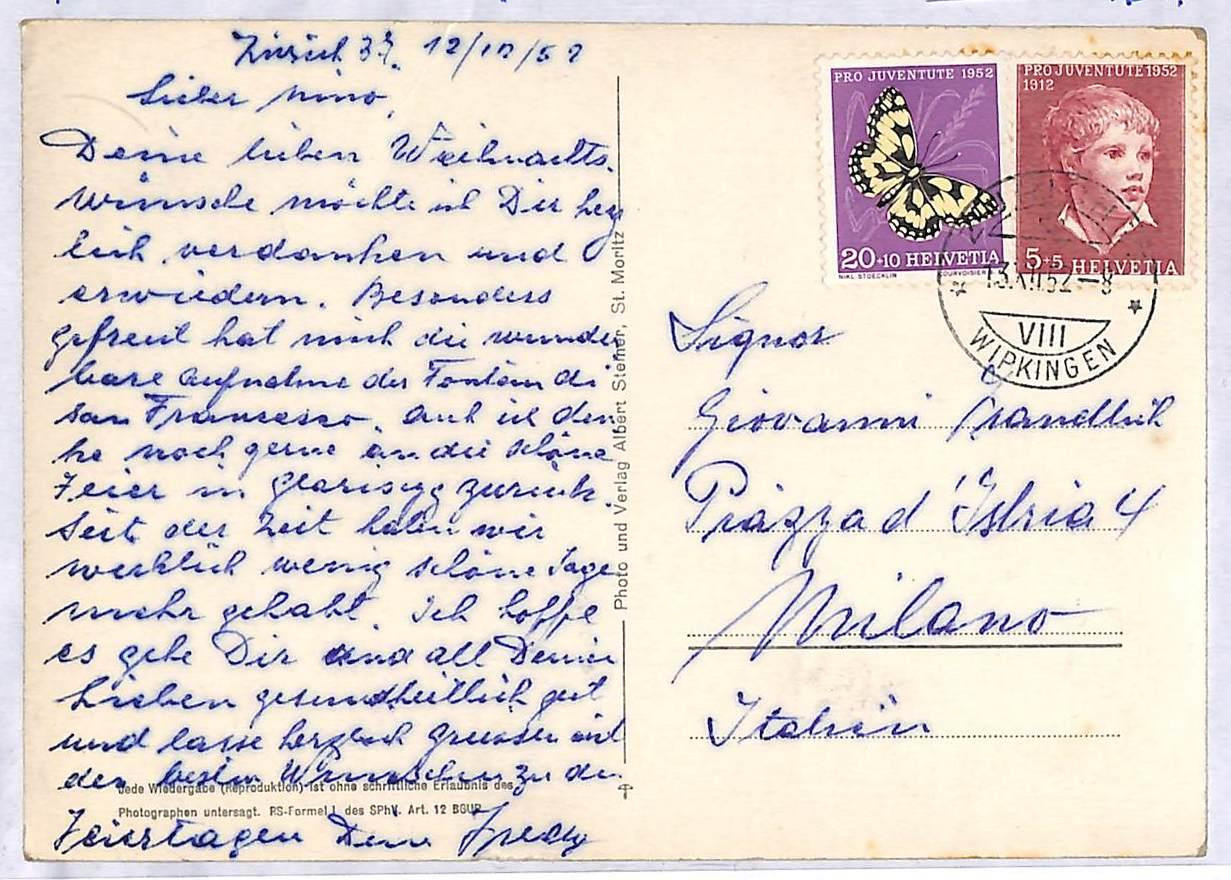 Zürich 37. 12/12/52
Lieber Nino,
Deine lieben Weihnachts-
wünsche möchte ich Dir herz
lich verdanken und
erwiedern. Besonders
gefreut hat mich die wunder
bare Aufnahme der Fontän di
San Francesco. Auch ich den
ke noch gerne an die schöne
Feier in Glarisegg zurück.
Seit der Zeit haben wir
wirklich wenig schöne Tage
mehr gehabt. Ich hoffe
es gehe Dir und all Deinen
Lieben gesundheitlich gut
und lasse herzlich grüssen mit
den besten Wünschen zu den
Feiertagen Dein Fredy
Photo und Verlag Albert Steiner, St. Moritz
Jede Wiedergabe (Reproduktion) ist ohne schriftliche Erlaubnis des
Photographen untersagt. RS-Formel I des SPhV. Art. 12 BGUR
PRO JUVENTUTE 1952
20+10 HELVETIA
NIKL STOECKLIN COURVOISIER
PRO JUVENTUTE 1952
1912
5+5 HELVETIA
13.XII.52–8
VIII
WIPKINGEN
Signor
Giovanni
Piazza d'Istria 4
Milano
Italien